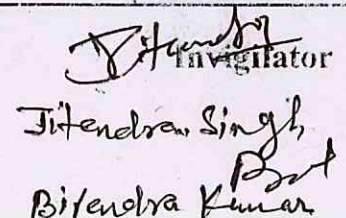 Jitendra
Invigilator
Jitendra Singh
Birendra Kumar